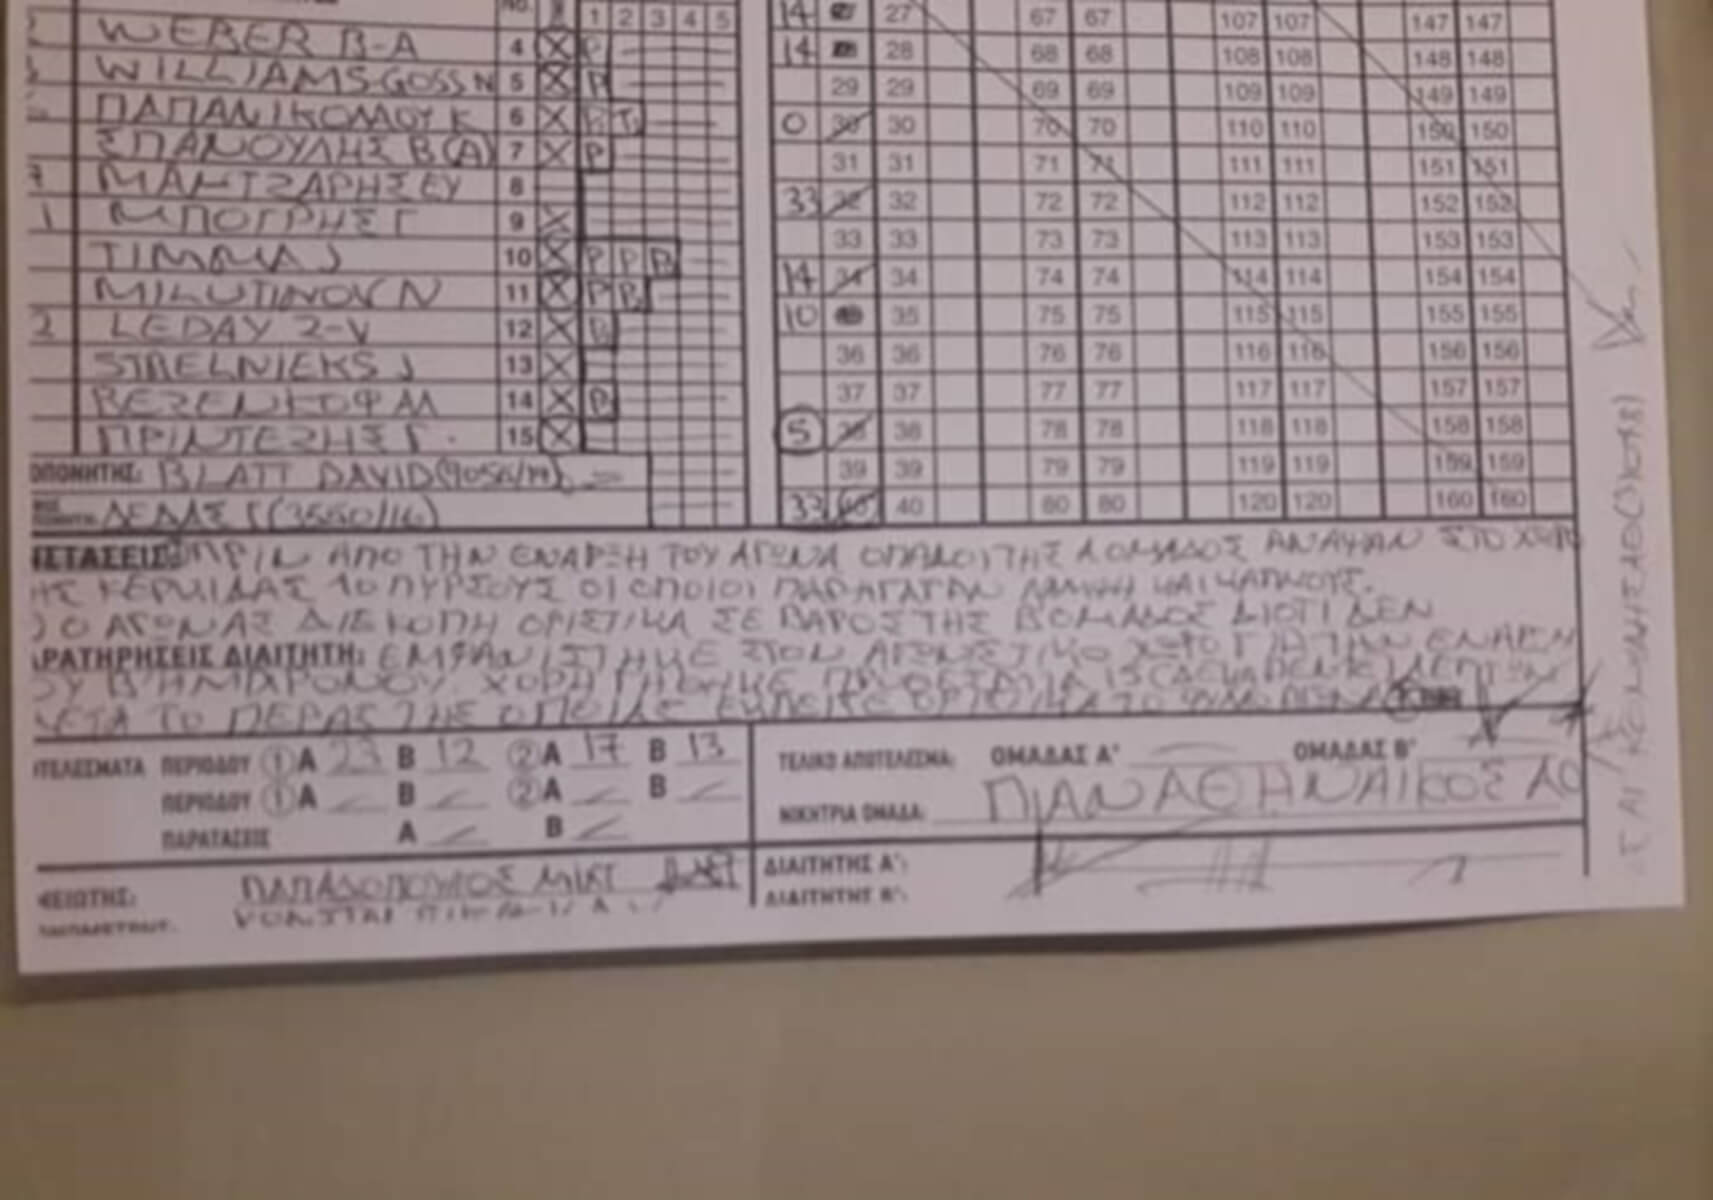 No. 1 2 3 4 5
WEBER B-A 4 X P
WILLIAMS-GOSS N 5 X P
ΠΑΠΑΝΙΚΟΛΑΟΥ Κ 6 X
ΣΠΑΝΟΥΛΗΣ Β (Α) 7 X P
ΜΑΝΤΖΑΡΗΣ ΕΥ 8
ΜΠΟΓΡΗΣ Γ 9 X
TIMMA J 10 X P P P
MILUTINOV N 11 X P P
LEDAY Z-V 12 X P
STRELNIEKS J 13 X
ΒΕΖΕΝΚΟΦ ΑΛ 14 X P
ΠΡΙΝΤΕΖΗΣ Γ. 15 X
ΟΠΟΝΗΤΗΣ: BLATT DAVID (9056/19)
ΛΕΔΑΣ Γ (3550/16)
14 27 67 67 107 107 147 147
14 28 68 68 108 108 148 148
29 29 69 69 109 109 149 149
0 30 30 70 70 110 110 150 150
31 31 71 71 111 111 151 151
33 32 32 72 72 112 112 152 152
33 33 73 73 113 113 153 153
14 34 34 74 74 114 114 154 154
10 35 75 75 115 115 155 155
36 36 76 76 116 116 156 156
37 37 77 77 117 117 157 157
5 38 38 78 78 118 118 158 158
39 39 79 79 119 119 159 159
33 40 40 80 80 120 120 160 160
ΙΣΤΑΣΕΙΣ: ΠΡΙΝ ΑΠΟ ΤΗΝ ΕΝΑΡΞΗ ΤΟΥ ΑΓΩΝΑ ΟΠΑΔΟΙ ΤΗΣ Α ΟΜΑΔΟΣ ΑΝΑΨΑΝ ΣΤΟ ΧΩΡΟ
ΗΣ ΚΕΡΚΙΔΑΣ 10 ΠΥΡΣΟΥΣ ΟΙ ΟΠΟΙΟΙ ΠΑΡΗΓΑΓΑΝ ΛΑΜΨΗ ΚΑΙ ΚΑΠΝΟΥΣ.
) Ο ΑΓΩΝΑΣ ΔΙΕΚΟΠΗ ΟΡΙΣΤΙΚΑ ΣΕ ΒΑΡΟΣ ΤΗΣ Β ΟΜΑΔΟΣ ΔΙΟΤΙ ΔΕΝ
ΑΡΑΤΗΡΗΣΕΙΣ ΔΙΑΙΤΗΤΗ: ΕΜΦΑΝΙΣΤΗΚΕ ΣΤΟΝ ΑΓΩΝΙΣΤΙΚΟ ΧΩΡΟ ΓΙΑ ΤΗΝ ΕΝΑΡΞΗ
ΟΥ Β' ΗΜΙΧΡΟΝΟΥ. ΧΟΡΗΓΗΘΗΚΕ ΠΡΟΘΕΣΜΙΑ 15 (ΔΕΚΑΠΕΝΤΕ) ΛΕΠΤΩΝ
ΜΕΤΑ ΤΟ ΠΕΡΑΣ ΤΗΣ ΟΠΟΙΑΣ
ΟΤΕΛΕΣΜΑΤΑ ΠΕΡΙΟΔΟΥ ① Α 23 Β 12 ② Α 17 Β 13
ΠΕΡΙΟΔΟΥ ① Α Β ② Α Β
ΠΑΡΑΤΑΣΕΙΣ Α Β
ΤΕΛΙΚΟ ΑΠΟΤΕΛΕΣΜΑ: ΟΜΑΔΑΣ Α' ΟΜΑΔΑΣ Β'
ΝΙΚΗΤΡΙΑ ΟΜΑΔΑ: ΠΑΝΑΘΗΝΑΙΚΟΣ ΑΟ
ΜΕΙΩΤΗΣ: ΠΑΠΑΔΟΠΟΥΛΟΣ
ΔΙΑΙΤΗΤΗΣ Α':
ΔΙΑΙΤΗΤΗΣ Β':